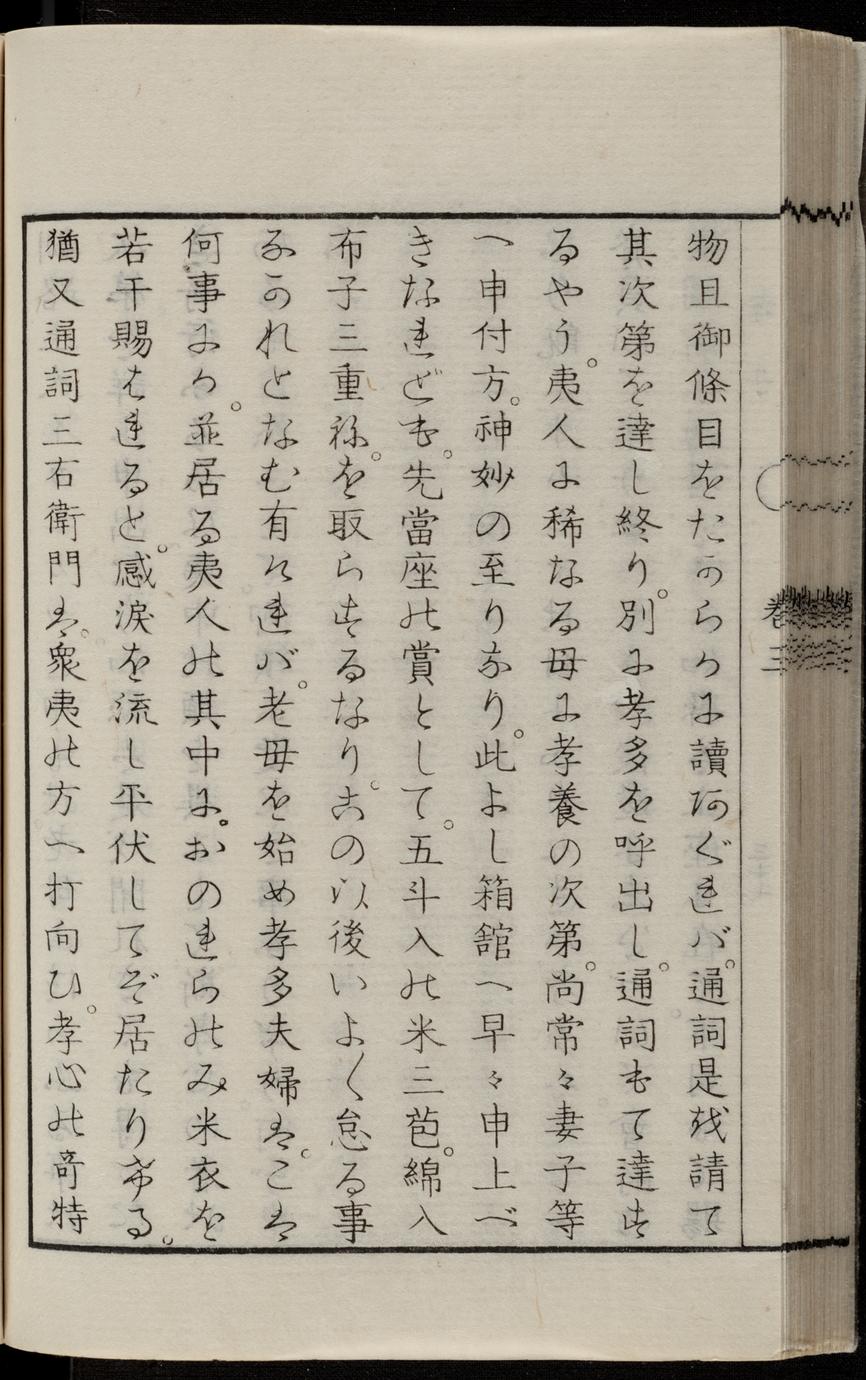 物且御條目をたからかに讀あぐれバ。通詞是を請て
其次第を達し終り。別に孝多を呼出し。通詞もて達す
るやう。夷人に稀なる母に孝養の次第。尚常々妻子等
へ申付方。神妙の至りなり。此よし箱舘へ早々申上べ
きなれども。先當座の賞として。五斗入の米三苞。綿入
布子三重祢を。取らするなり。この以後いよ〱怠る事
なかれとなむ有けれバ。老母を始め孝多夫婦は。こは
何事にか。並居る夷人の其中に。おのれらのみ米衣を
若干賜はれると。感涙を流し平伏してぞ居たりける。
猶又通詞三右衛門は。衆夷の方へ打向ひ。孝心の竒特
巻三